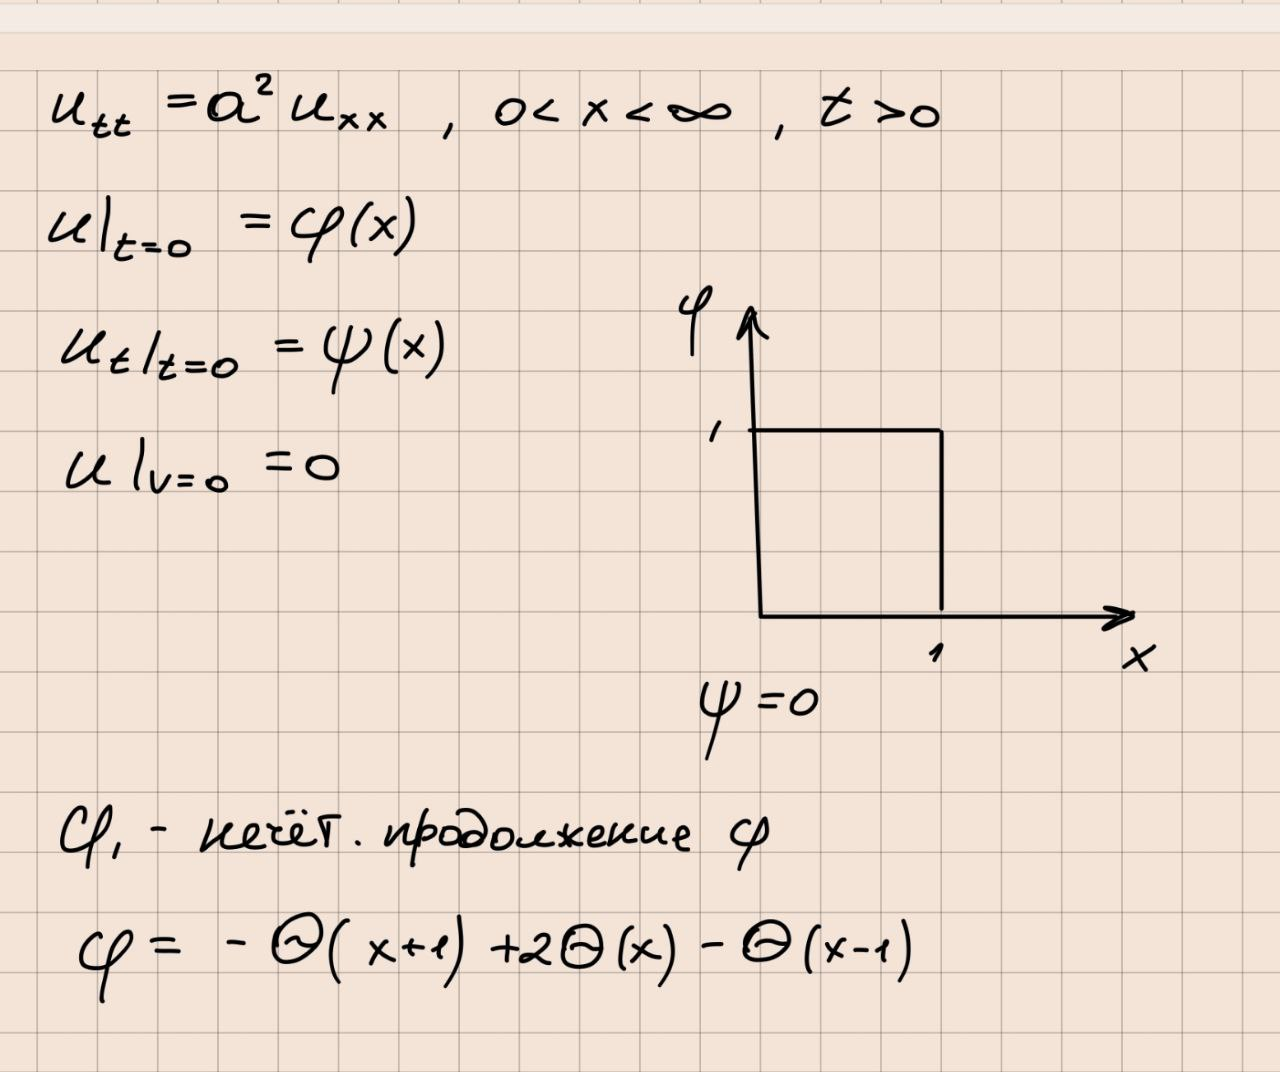 u_tt = a² u_xx , 0 < x < ∞ , t > 0
u|_t=0 = φ(x)
u_t|_t=0 = ψ(x)
u|_v=0 = 0
φ
1
1
x
ψ = 0
φ₁ - нечёт. продолжение φ
φ = - Θ(x+1) + 2Θ(x) - Θ(x-1)